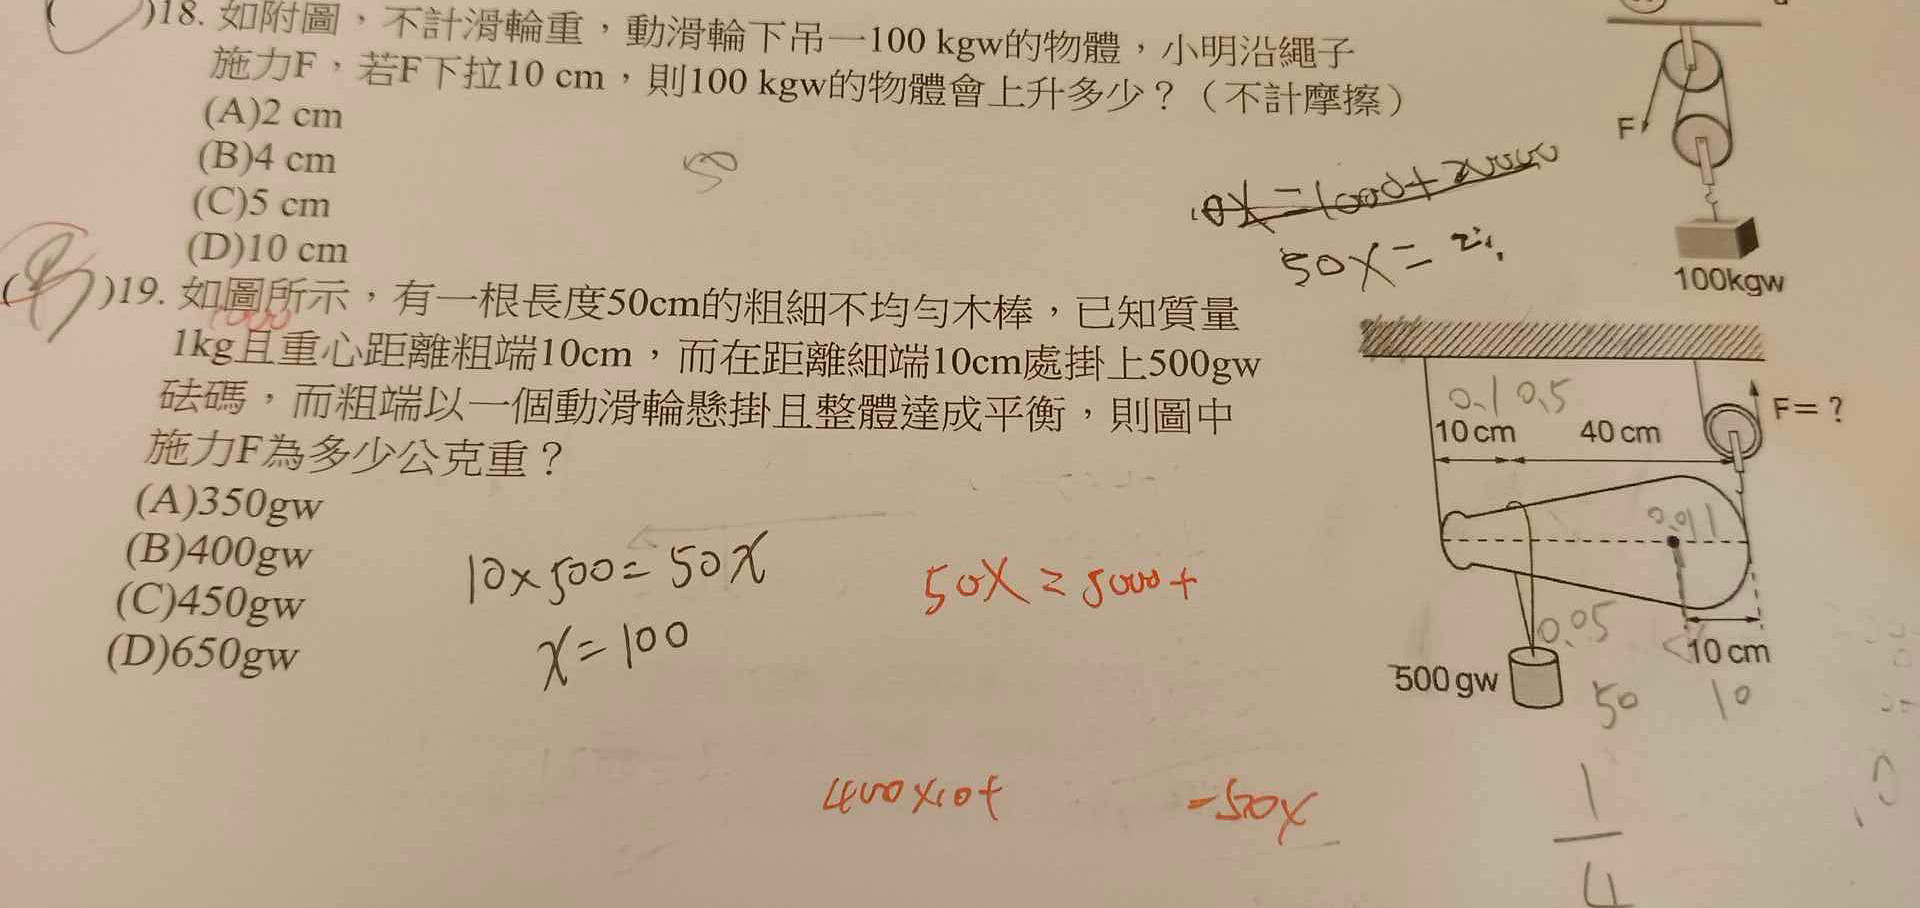 ( )18. 如附圖，不計滑輪重，動滑輪下吊一100 kgw的物體，小明沿繩子
施力F，若F下拉10 cm，則100 kgw的物體會上升多少？（不計摩擦）
(A)2 cm
(B)4 cm
(C)5 cm
(D)10 cm
50
F
100kgw
50X=
( )19. 如圖所示，有一根長度50cm的粗細不均勻木棒，已知質量
1000
1kg且重心距離粗端10cm，而在距離細端10cm處掛上500gw
砝碼，而粗端以一個動滑輪懸掛且整體達成平衡，則圖中
施力F為多少公克重？
(A)350gw
(B)400gw
(C)450gw
(D)650gw
10×500=50X
X=100
50X=5000+
400×10+ =50X
0.1 0.5
10 cm 40 cm
F=？
0.05
10 cm
500 gw
50 10
1
4